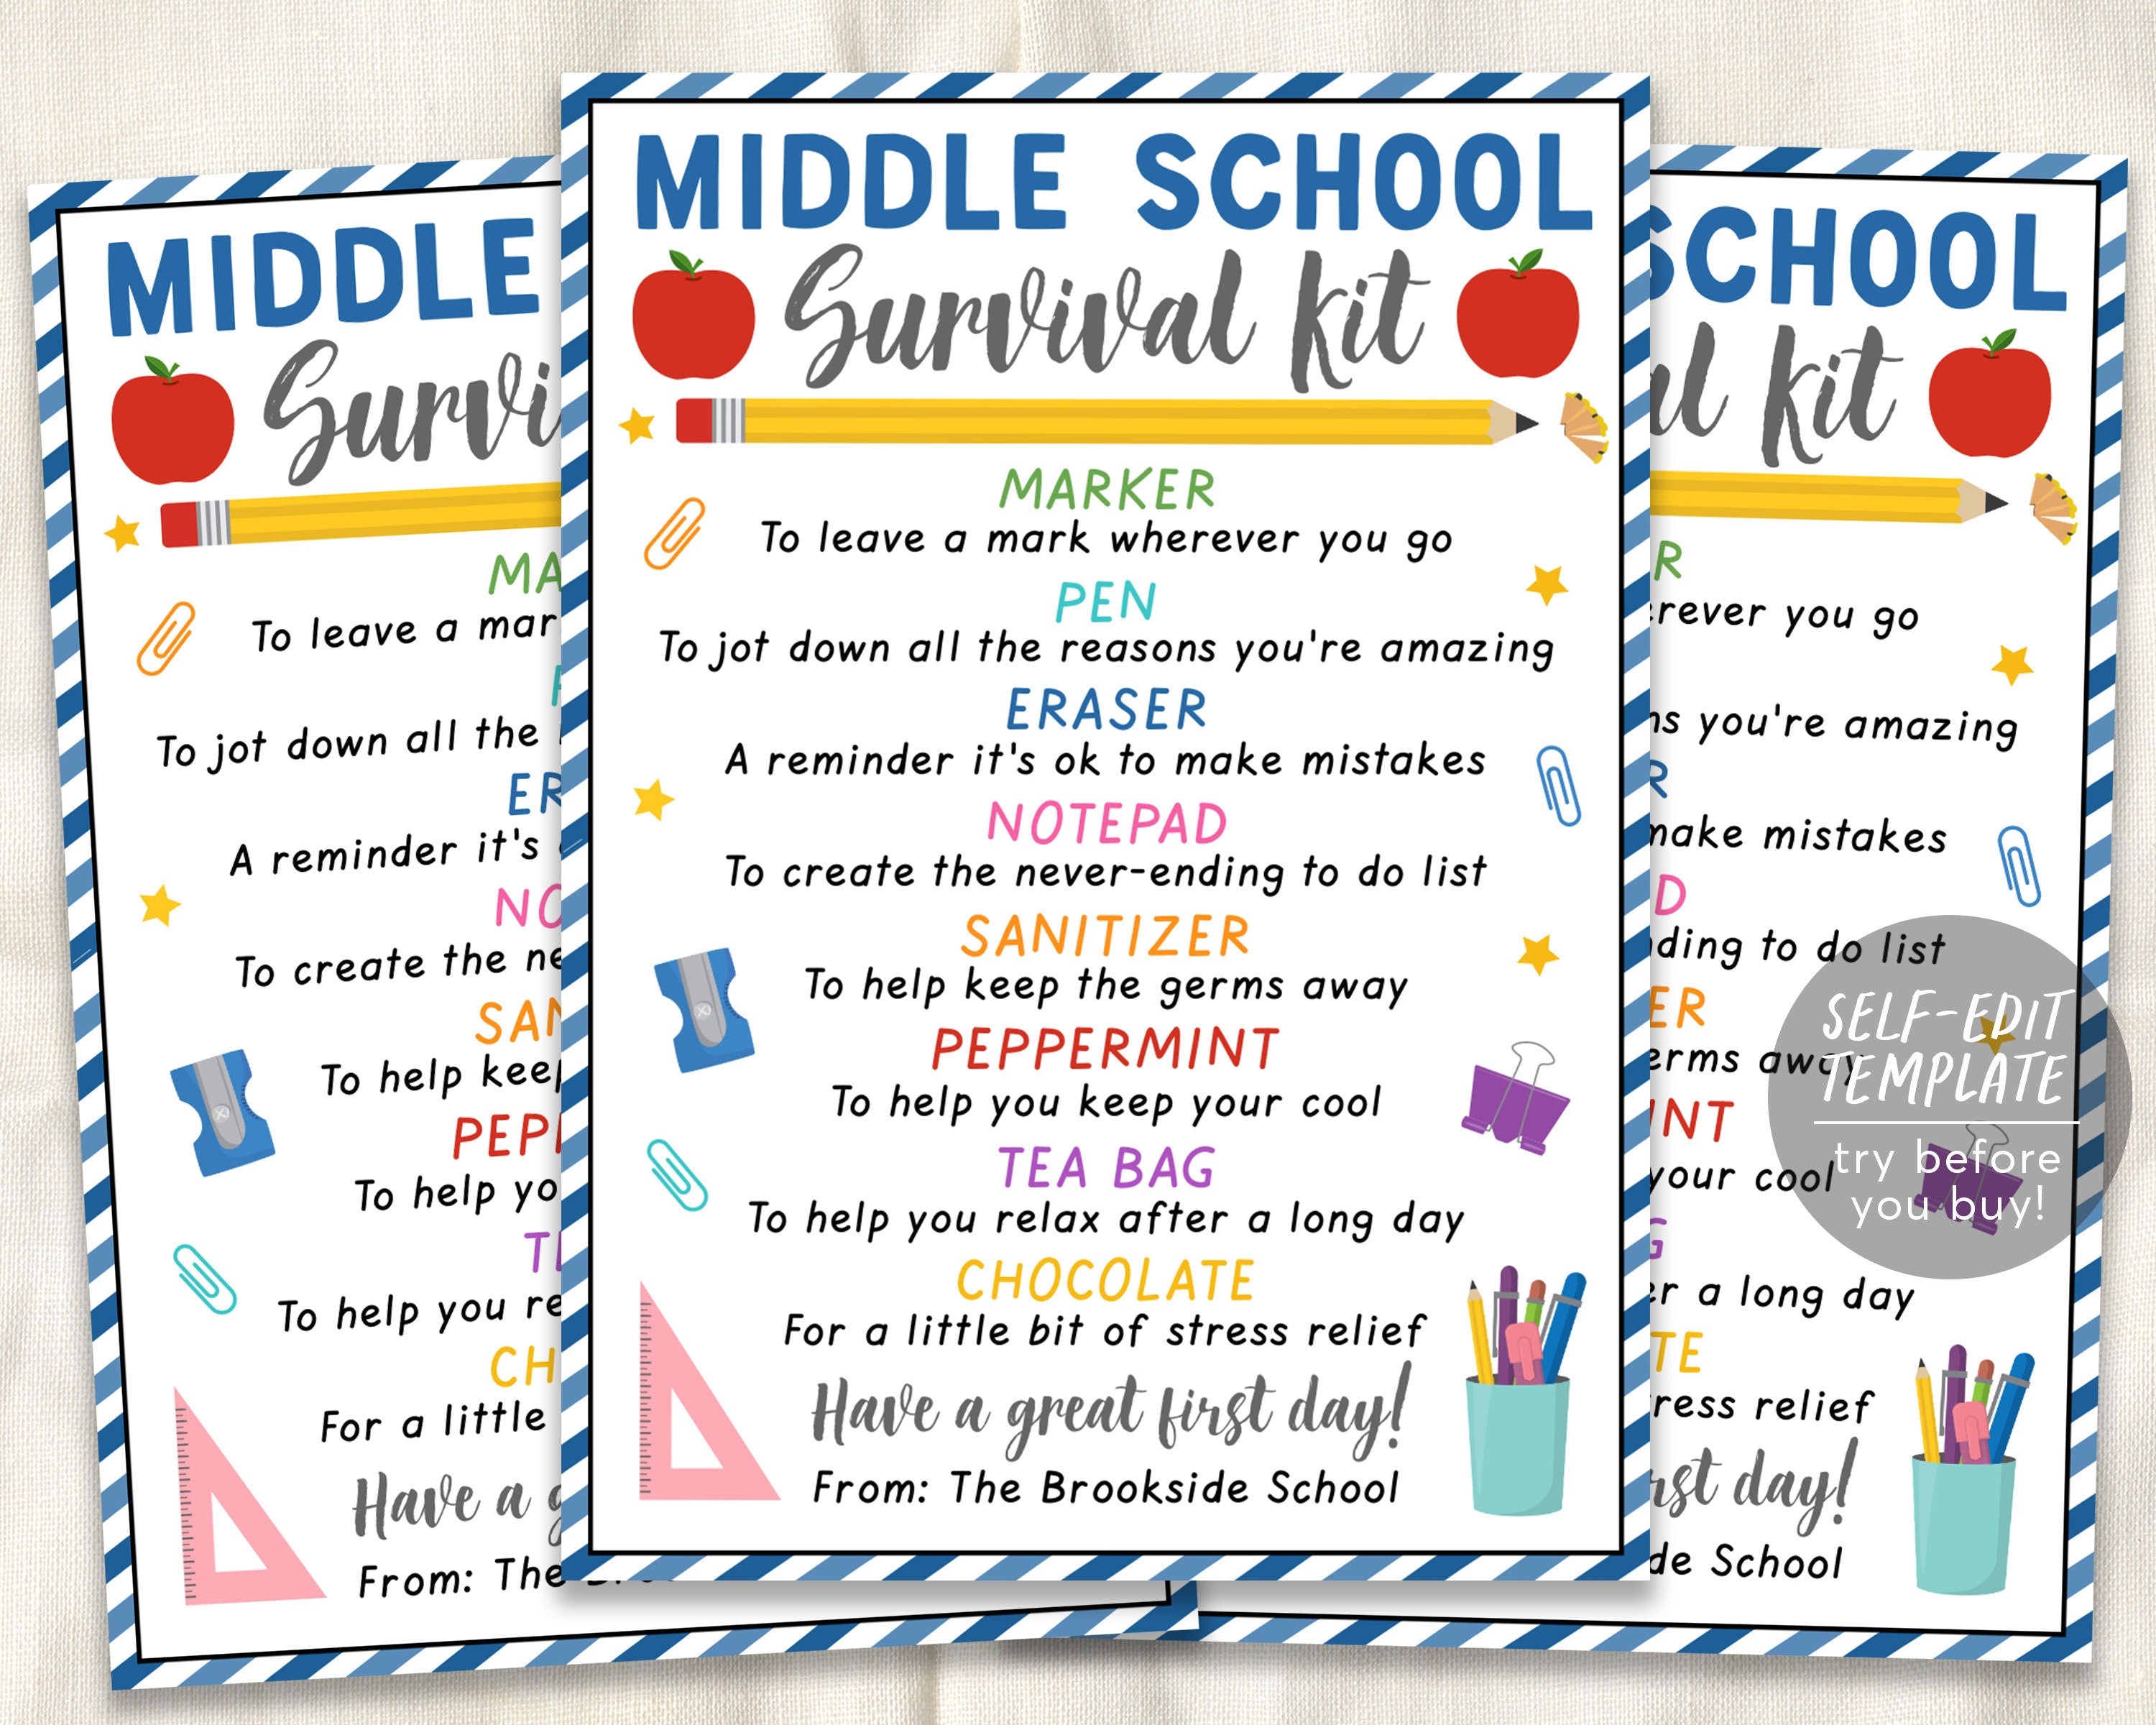 MIDDLE SCHOOL
Survival Kit
MARKER
To leave a mark wherever you go
PEN
To jot down all the reasons you're amazing
ERASER
A reminder it's ok to make mistakes
NOTEPAD
To create the never-ending to do list
SANITIZER
To help keep the germs away
PEPPERMINT
To help you keep your cool
TEA BAG
To help you relax after a long day
CHOCOLATE
For a little bit of stress relief
Have a great first day!
From: The Brookside School
MIDDLE
Survi
MA
To leave a mar
To jot down all the
ER
A reminder it's
NO
To create the ne
SAN
To help keep
PEPP
To help yo
TE
To help you re
CH
For a little
Have a g
From: The
SCHOOL
al Kit
R
erever you go
ns you're amazing
R
make mistakes
D
nding to do list
ER
erms away
INT
your cool
G
er a long day
TE
tress relief
rst day!
de School
SELF-EDIT
TEMPLATE
try before
you buy!